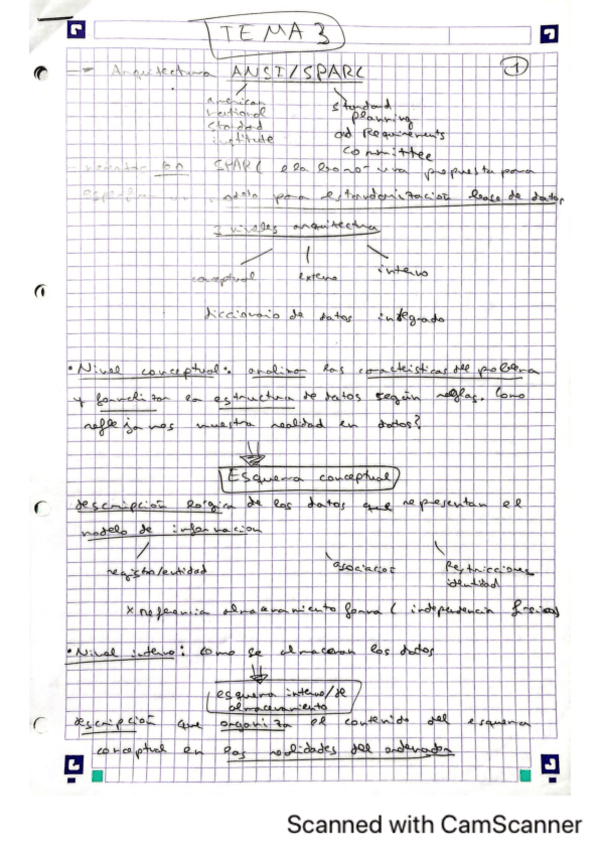 TEMA 3
1
→ Arquitectura ANSI/SPARC
american
national
standard
institute
standard
planning
ad Requirements
committee
SPARC elaboró una propuesta para
modelo para estandarización base de datos
3 niveles arquitectura
conceptual externo interno
diccionario de datos integrado
• Nivel conceptual: analizar las características del problema
y formalizar la estructura de datos según reglas. Como
reflejamos nuestra realidad en datos?
Esquema conceptual
descripción lógica de los datos que representan el
modelo de informacion
registro/entidad asociacion Restricciones
identidad
x referencia almacenamiento forma (independencia física)
• Nivel interno: como se almacenan los datos
esquema interno/de
almacenamiento
descripción que organiza el contenido del esquema
conceptual en las realidades del ordenador
Scanned with CamScanner